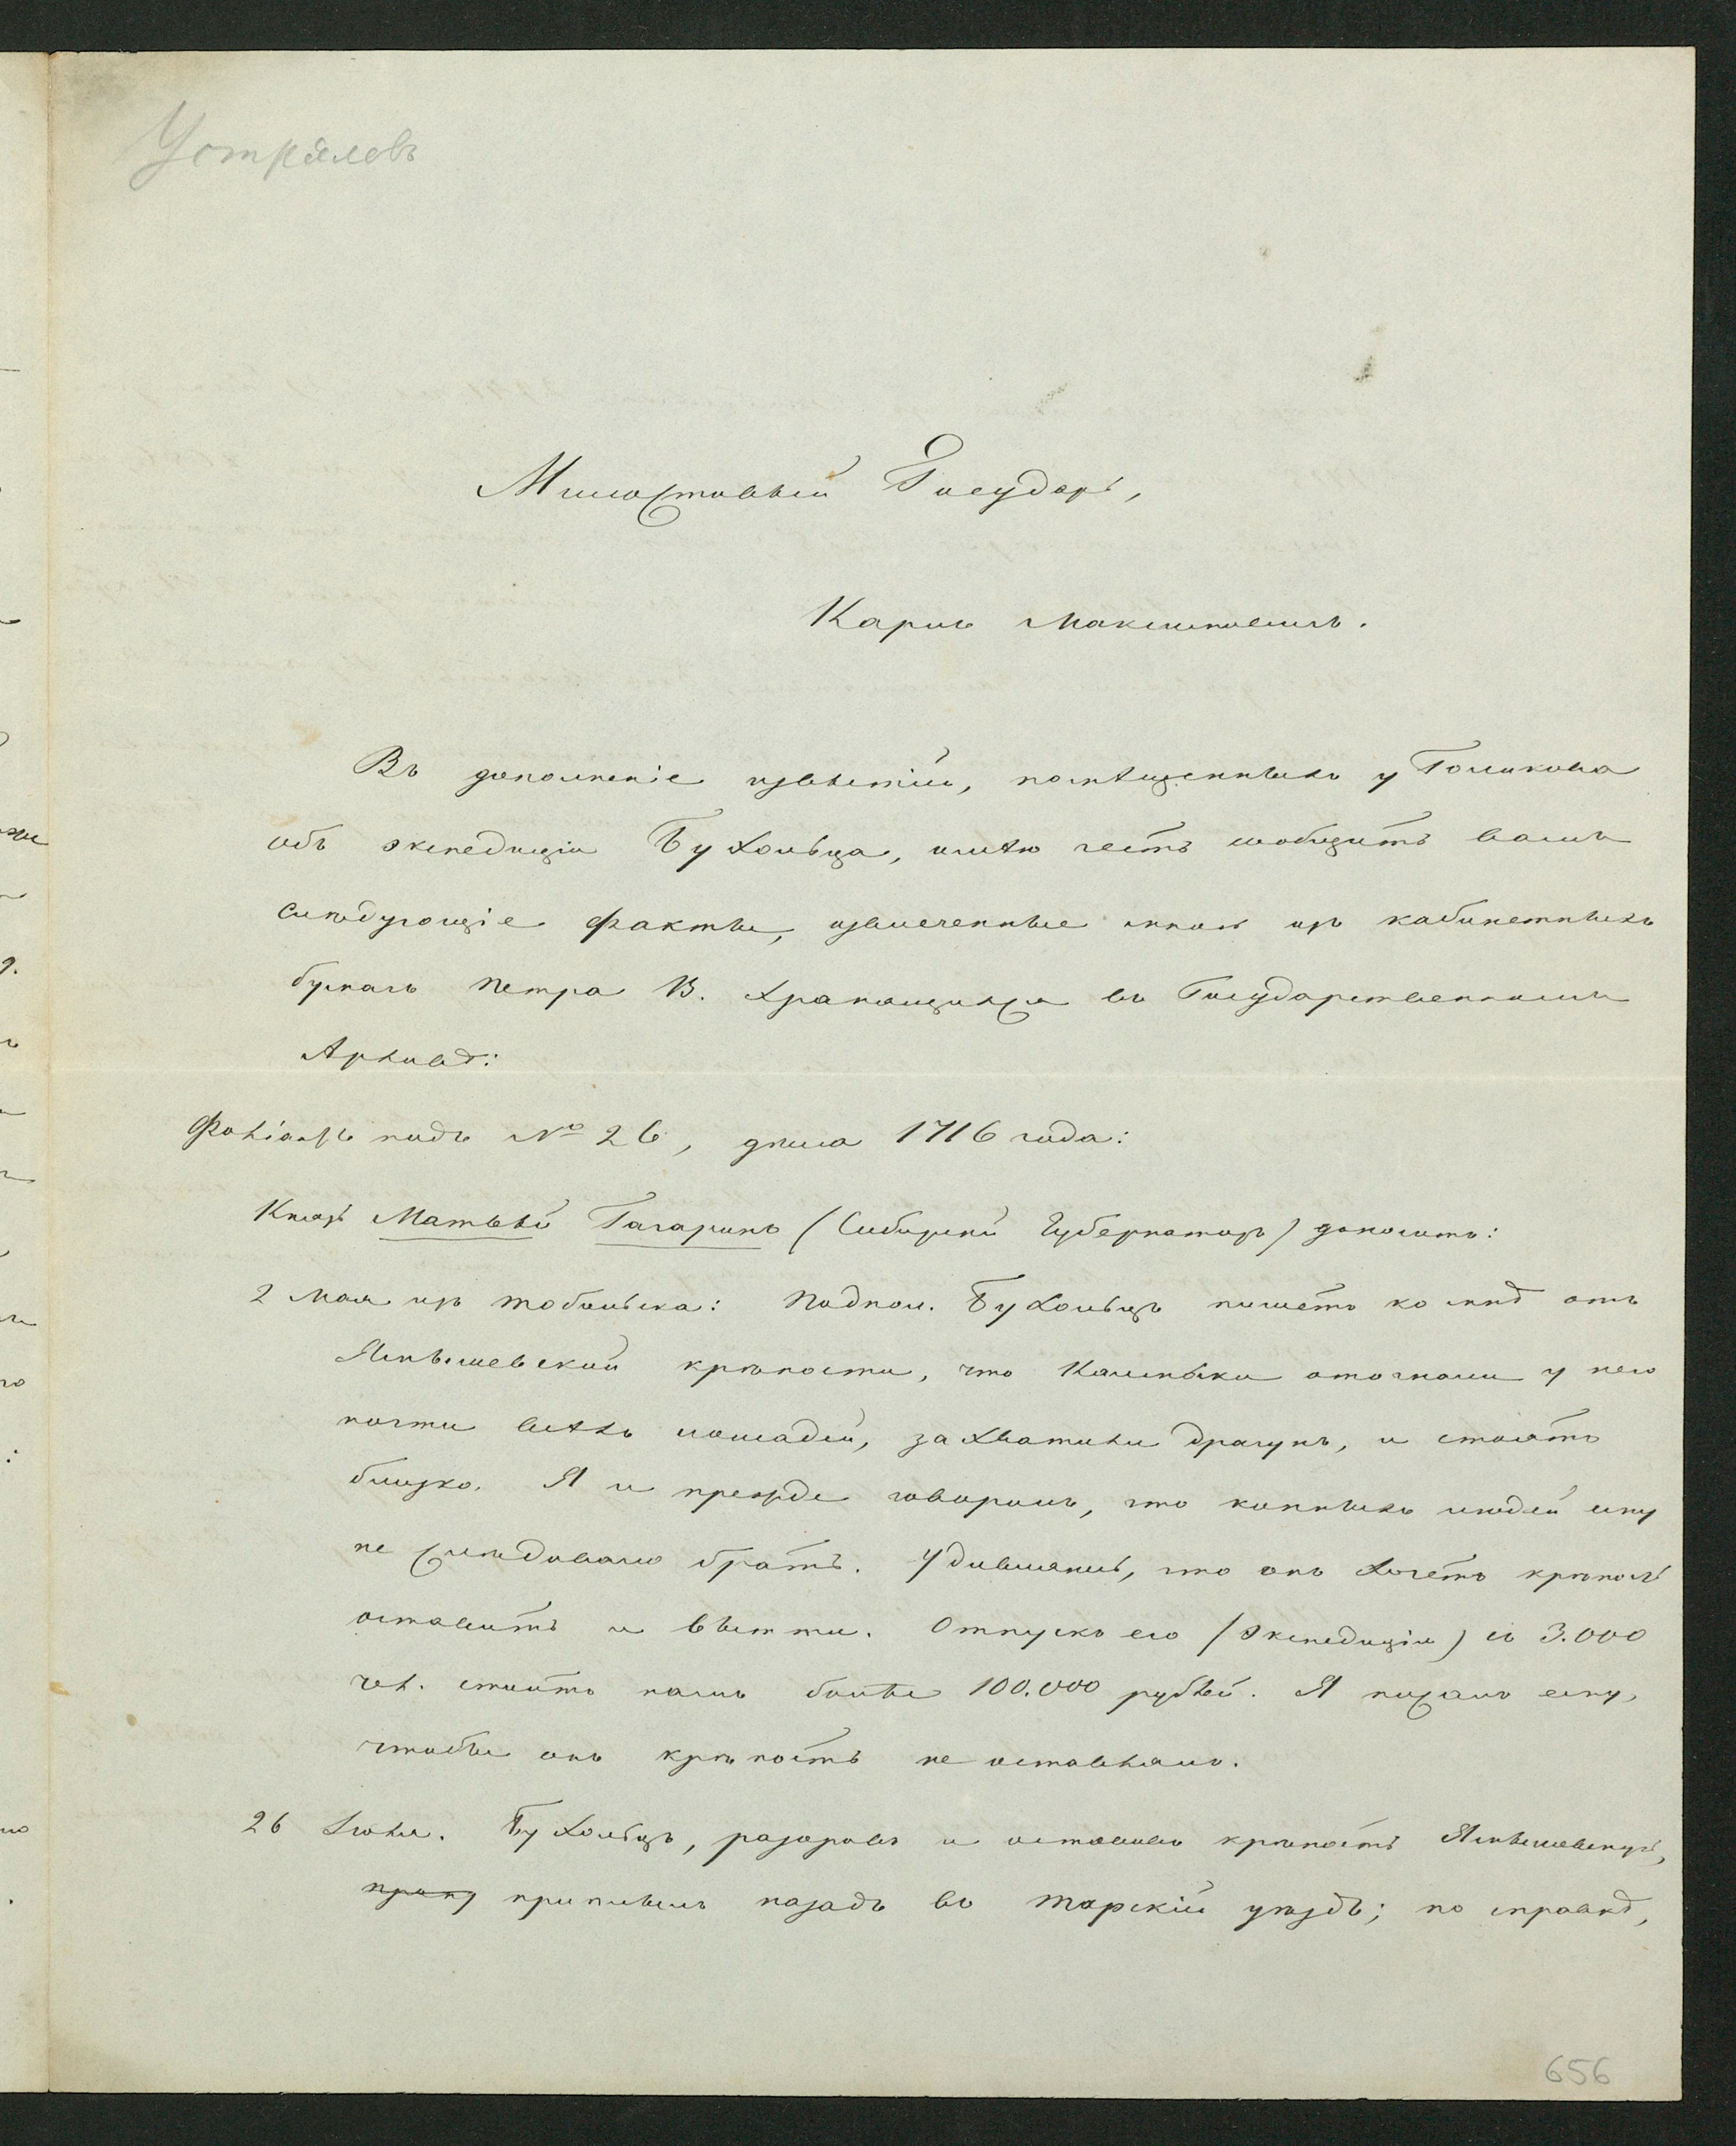 Устряловъ
Милостивый Государь,
Карлъ Максимовичъ.
Въ дополненіе извѣстій, помѣщенныхъ у Голикова
объ экспедиціи Бухольца, имѣю честь сообщить вамъ
слѣдующіе факты, извлеченные мною изъ кабинетныхъ
бумагъ Петра В. хранящихся въ Государственномъ
Архивѣ:
Фоліантъ подъ № 26, дѣла 1716 года:
Князь Матвѣй Гагаринъ (Сибирскій Губернаторъ) доноситъ:
2 Мая изъ Тобольска: Подпол. Бухольцъ пишетъ ко мнѣ отъ
Ямышевской крѣпости, что Калмыки отогнали у него
почти всѣхъ лошадей, захватили драгунъ, и стоятъ
близко. Я и прежде говорилъ, что конныхъ людей ему
не слѣдовало брать. Удивляюсь, что онъ хочетъ крѣпость
оставить и вытти. Отпускъ его (экспедиціи) съ 3.000
чел. стоитъ намъ болѣе 100.000 рублей. Я писалъ ему,
чтобы онъ крѣпость не оставлялъ.
26 Іюля. Бухольцъ, разоривъ и оставивъ крѣпость Ямышевскую,
приплылъ назадъ въ Тарскій уѣздъ; по справкѣ,
656